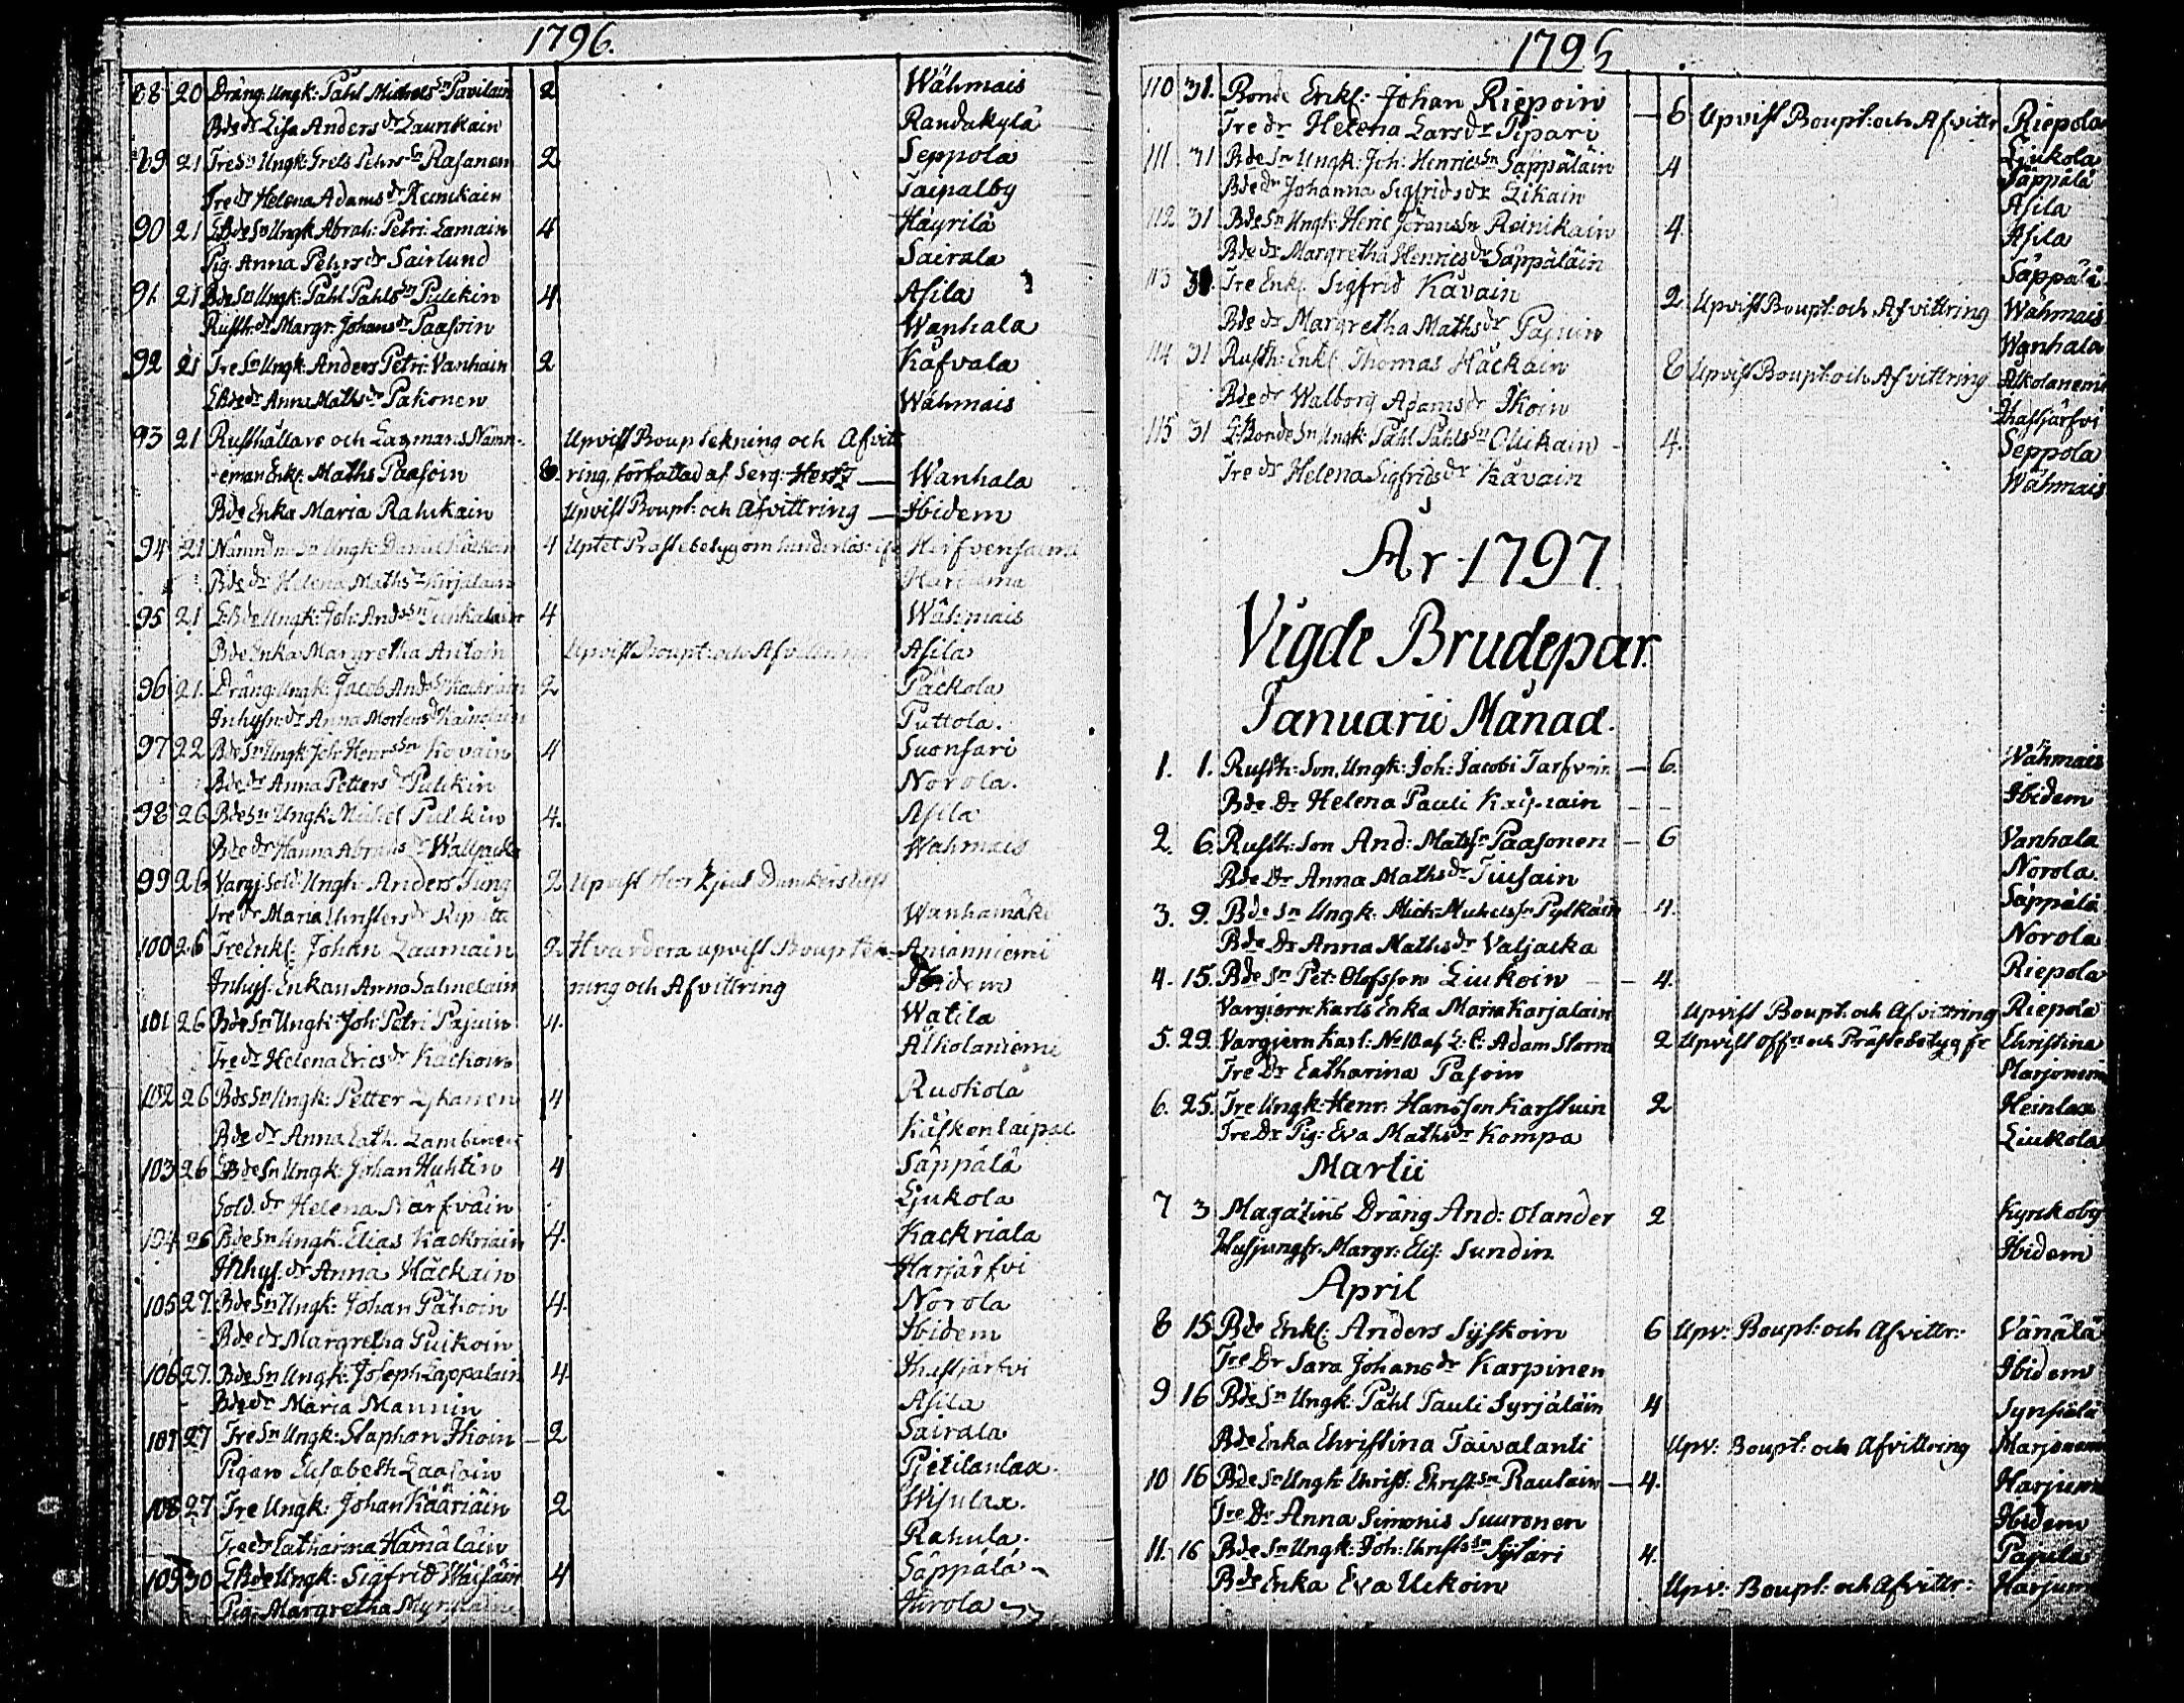 1796.
88 20 Dräng. Ungk: Påhl Michels Sn Pavilain 2 Wähmais
Bde dr Lisa Anders dr Laurikain Randakylä
89 21 Tre Sn Ungk: Grels Pehrs Sn Rasanen 2 Seppola
Tre dr Helena Adams dr Reinikain Taipalby
90 21 LBde Sn Ungk Abrah: Petri: Lamain 4 Häyrilä
Pig. Anna Pehrs dr Sairlund Sairala
91. 21 Bde Sn Ungk: Påhl Påhls Sn Pulckin 4 Asila
Rusth: dr Margr. Johans dr Paasoin Wanhala
92 21 Tre Sn Ungk: Anders Petri: Vanhain 2 Kåfvala
LBde dr Anna Maths dr Pakonen Wähmais
93 21 Rusthållare och Lagmans Nämn- Upvist Bouptekning och Afvitt
-eman Enkl: Maths Paasoin 8. ring, författad af Serg: Hertz — Wanhala
Bde Enka Maria Rahikain Upvist Boupt: och Afvittring — Ibidem
94 21 Ungk: Daniel 4
Bde dr Helena Maths dr Kirjalain
95 21 LBde Ungk: Joh: Ands Sn 4 Wähmais
Bde Enka Margretha Antoin Upvist Boupt: och Afvittring Asila
96 21. Dräng Ungk: Jacob Ands Sn Kackriain 2 Päckola
Inhyss: dr Anna Mortens dr Puttola.
97 22 Bde Sn Ungk: Joh: Henrs Sn Kovain 4 Suonsari
Bde dr Anna Petters dr Pulckin Norola.
98 26 Bde Sn Ungk: Michel Pulckin 4. Asila
Bde dr Hanna Abrahs dr Waljacka Wähmais
99 26 Vargj: Sold: Ungk: Anders Tung 2 Upvist Herr Dunkers Wanhamäki
Tre dr Maria Christers dr
100 26 Tre Enkl: Johan Laumain 2 Hvardera upvist Bouptek- Anianniemi
Inhys. Enkan Anna Salmelain ning och Afvittring Ibidem
101 26 Bde Sn Ungk: Joh: Petri Pajuin 4. Watila
Tre dr Helena Erics dr Käckoin Alkolaniemi
102 26 Bde Sn Ungk: Petter Lykanen 4 Ruokola
Bde dr Anna Cath. Lambinen
103 26 LBde Sn Ungk: Johan Huhtin 4 Säppälä
Sold. dr Helena Närfväin Ljukola
104 26 Bde Sn Ungk: Elias Kackriain 4. Kackriala
Inhys. dr Anna Häckain Harjärfvi
105 27. Bde Sn Ungk: Johan Pakoin 4. Norola
Bde dr Margretha Puikoin Ibidem
106 27. Bde Sn Ungk: Joseph Lappalain 4. Ihastjärfvi
Bde dr Maria Mannin Asila
107 27 Tre Sn Ungk: Staphan Ihoin 2 Sairala
Pigan Elisabeth Laasoin Pjetilanlax.
108 27 Tre Ungk: Johan Kääriäin 2 Wisulax.
Tre dr Catharina Hämäläin Rahula.
109 30 LBde Ungk: Sigfrid Wäisäin 4 Säppälä
Pig: Margretha Hirola
1796.
110 31. Bonde Enkl: Johan Riepoin 6 Upvist Boupt: och Afvittr Riepola
Tre dr Helena Lars dr Pipari Ljukola
111 31 Bde Sn Ungk: Joh: Henrics Sn Säppäläin 4 Säppälä
Bde dr Johanna Sigfrids dr Likain Asila
112 31 Bde Sn Ungk: Heric Jörans Sn Reinikain 4. Asila
Bde dr Margretha Henrics dr Säppäläin Säppälä
113 31. Tre Enkl. Sigfrid Kåvain 2. Upvist Boupt: och Afvittring Wähmais
Bde dr Margretha Maths dr Pajuin Wanhala
114 31 Rusth: Enkl. Thomas Häckain 6 Upvist Boupt: och Afvittring Alkolanemi
Bde dr Walborg Adams dr Ikoin Ihastjärfvi
115 31 L:Bonde Sn Ungk: Påhl Påhls Sn Ollikain 4. Seppola
Tre dr Helena Sigfrids dr Kåvain Wähmais
År 1797.
Vigde Brudepar.
Januarii Månad.
1. 1. Rusth: Son, Ungk: Joh: Jacobi Tarfvain 6. Wähmais
Bde Dr Helena Pauli Ibidem
2. 6. Rusth: Son And: Mats Sn Paasonen 6 Vanhala
Bde Dr Anna Maths dr Tiusain Norola.
3. 9. Bde Sn Ungk: Mich: Michels Sn Pylkäin 4. Säppälä
Bde Dr Anna Maths dr Valjacka Norola
4. 15. Bde Sn Pet: Olofsson Liukoin 4. Riepola
Vargiern Karls Enka Maria Karjalain Upvist Boupt: och Afvittring Riepola
5. 29. Vargjern Karl: No 10 af L: C: Adam Storm 2 Upvist Offrs och Prästebetyg Christina
Tre Dr Catharina Pasoin Marjonemi
6. 25. Tre Ungk: Henr: Hansson Karstuin 2 Heinlax
Tre Dr Pig: Eva Maths dr Kompa Liukola
Martii
7 3 Magazins Dräng And: Olander 2 Kyrckoby
Husjungfr: Margr: Elis: Sundin Ibidem
April
8 15 Bde Enkl: Anders Syskoin 6 Upv: Boupt: och Afvittr: Vänälä
Tre Dr Sara Johans dr Karpinen Ibidem
9 16 Bde Sn Ungk: Påhl Pauli Syrjäläin 4 Synsiälä
Bde Enka Christina Taivalanti Upv: Boupt: och Afvittring Marjonem
10 16 Bde Sn Ungk: Christ: Christ: Sn Raulain 4. Harjum
Tre Dr Anna Simonis Suuronen Ibidem
11. 16 Bde Sn Ungk: Joh: Chrsts Sn Sytäri 4. Pajula
Bde Enka Eva Uckoin Upv: Boupt: och Afvittr: Harjum